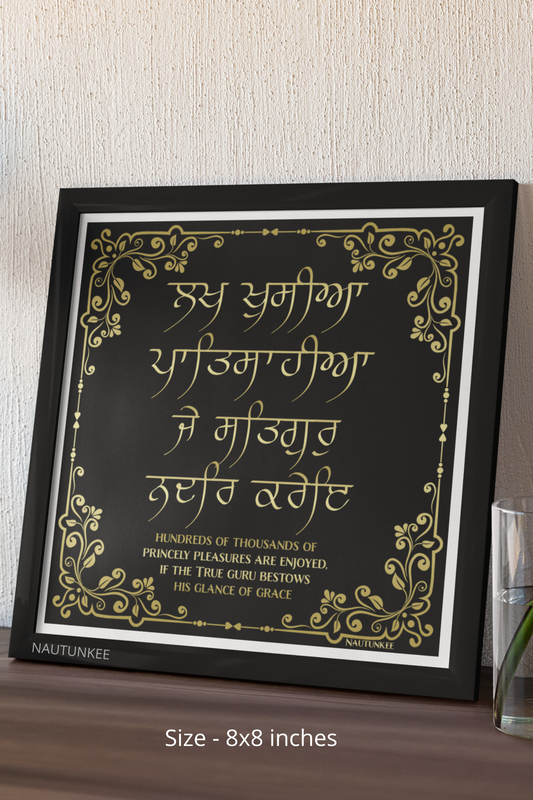 ਲਖ ਖੁਸੀਆ
ਪਾਤਿਸਾਹੀਆ
ਜੇ ਸਤਿਗੁਰੁ
ਨਦਰਿ ਕਰੇਇ
HUNDREDS OF THOUSANDS OF
PRINCELY PLEASURES ARE ENJOYED,
IF THE TRUE GURU BESTOWS
HIS GLANCE OF GRACE
NAUTUNKEE
NAUTUNKEE
Size - 8x8 inches